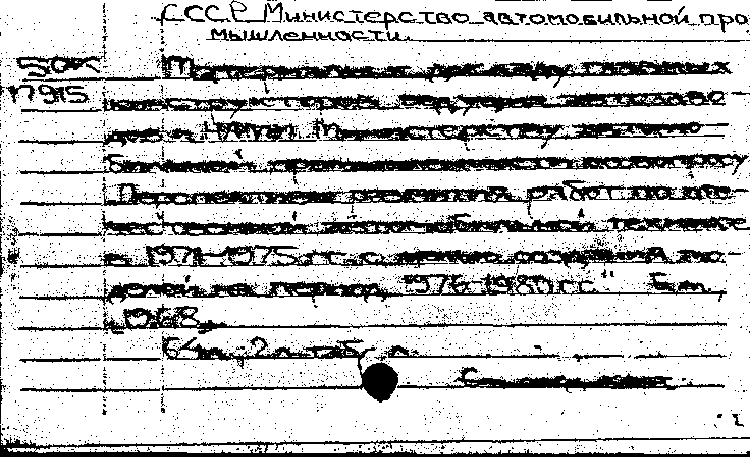 СССР Министерство автомобильной про
мышленности.
50К Материалы к докладу главных
17915 конструкторов ведущих автозаво
дов и НАМИ Министерству автомо
бильной промышленности по вопросу
"Перспективы развития работ по оте-
чественной автомобильной технике
в 1971-1975 гг. с целью создания мо-
делей на период 1976-1980 гг." Б.м.,
1968.
64л., 2 л. табл.